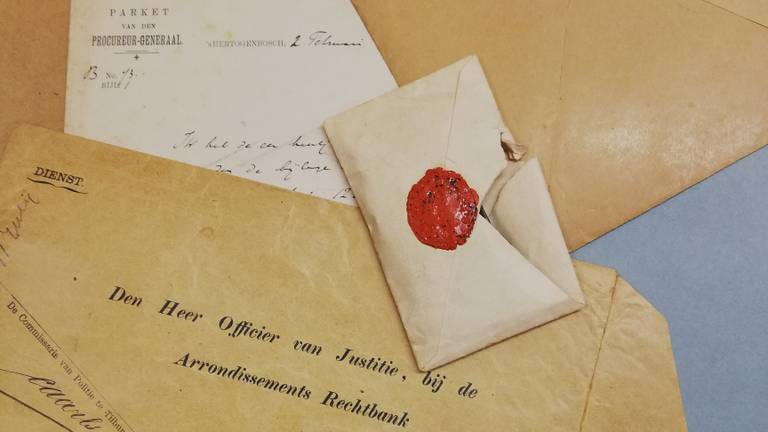 PARKET
VAN DEN
PROCUREUR-GENERAAL.
'sHERTOGENBOSCH, 2 Februari
B No. 73.
BIJL. 1
Ik heb de eer
de bijlage
DIENST.
Den Heer Officier van Justitie, bij de
Arrondissements Rechtbank
De Commissaris van Politie te Tilbur